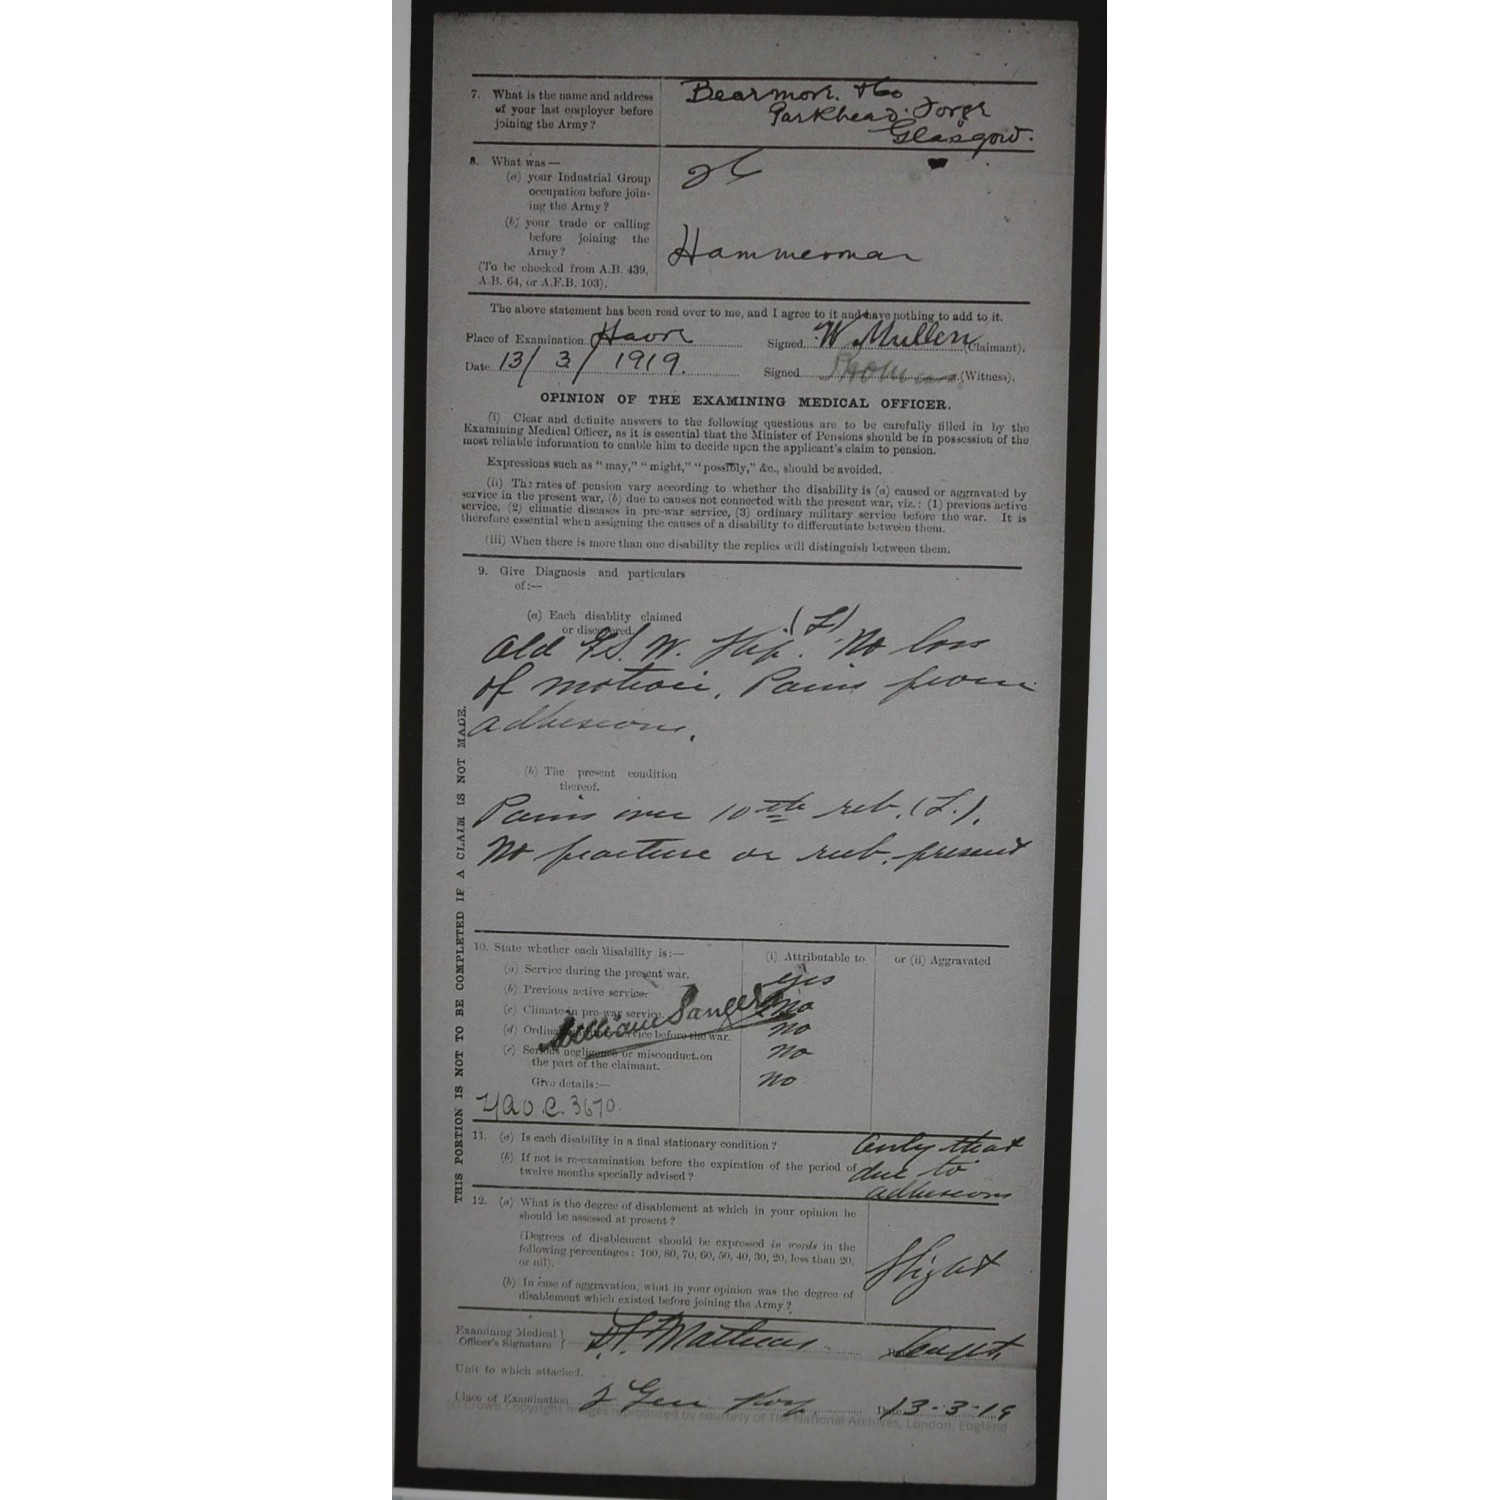 7. What is the name and address
of your last employer before
joining the Army?
Bearmore & Co
Parkhead Forge
Glasgow.
8. What was—
(a) your Industrial Group
occupation before join-
ing the Army?
26
(b) your trade or calling
before joining the
Army?
Hammerman
(To be checked from A.B. 439,
A.B. 64, or A.F.B. 103).
The above statement has been read over to me, and I agree to it and have nothing to add to it.
Place of Examination Havre Signed W Mullen (Claimant).
Date 13/3/1919. Signed (Witness).
OPINION OF THE EXAMINING MEDICAL OFFICER.
(i) Clear and definite answers to the following questions are to be carefully filled in by the
Examining Medical Officer, as it is essential that the Minister of Pensions should be in possession of the
most reliable information to enable him to decide upon the applicant's claim to pension.
Expressions such as "may," "might," "possibly," &c., should be avoided.
(ii) The rates of pension vary according to whether the disability is (a) caused or aggravated by
service in the present war, (b) due to causes not connected with the present war, viz.: (1) previous active
service, (2) climatic diseases in pre-war service, (3) ordinary military service before the war. It is
therefore essential when assigning the causes of a disability to differentiate between them.
(iii) When there is more than one disability the replies will distinguish between them.
9. Give Diagnosis and particulars
of:—
(a) Each disablity claimed
or discovered.
Old G.S.W. Hip. (L) No loss
of motion. Pains from
adhesions.
(b) The present condition
thereof.
Pains over 10th rib. (L).
No fracture or rub. present
THIS PORTION IS NOT TO BE COMPLETED IF A CLAIM IS NOT MADE.
10. State whether each disability is:— (i) Attributable to or (ii) Aggravated
(a) Service during the present war. yes
(b) Previous active service. no
(c) Climate in pre-war service. no
(d) Ordinary military service before the war. no
(e) Serious negligence or misconduct on
the part of the claimant. no
William Sangers
Give details:—
3670.
11. (a) Is each disability in a final stationary condition? Only that
(b) If not is re-examination before the expiration of the period of due to
twelve months specially advised? adhesions
12. (a) What is the degree of disablement at which in your opinion he
should be assessed at present?
(Degrees of disablement should be expressed in words in the
following percentages: 100, 80, 70, 60, 50, 40, 30, 20, less than 20,
or nil).
Slight
(b) In case of aggravation, what in your opinion was the degree of
disablement which existed before joining the Army?
Examining Medical
Officer's Signature } Mathews Capt.
Unit to which attached.
Place of Examination 2 Gen Hosp. Date 13-3-19
(c) Crown Copyright Images reproduced by courtesy of The National Archives, London, England